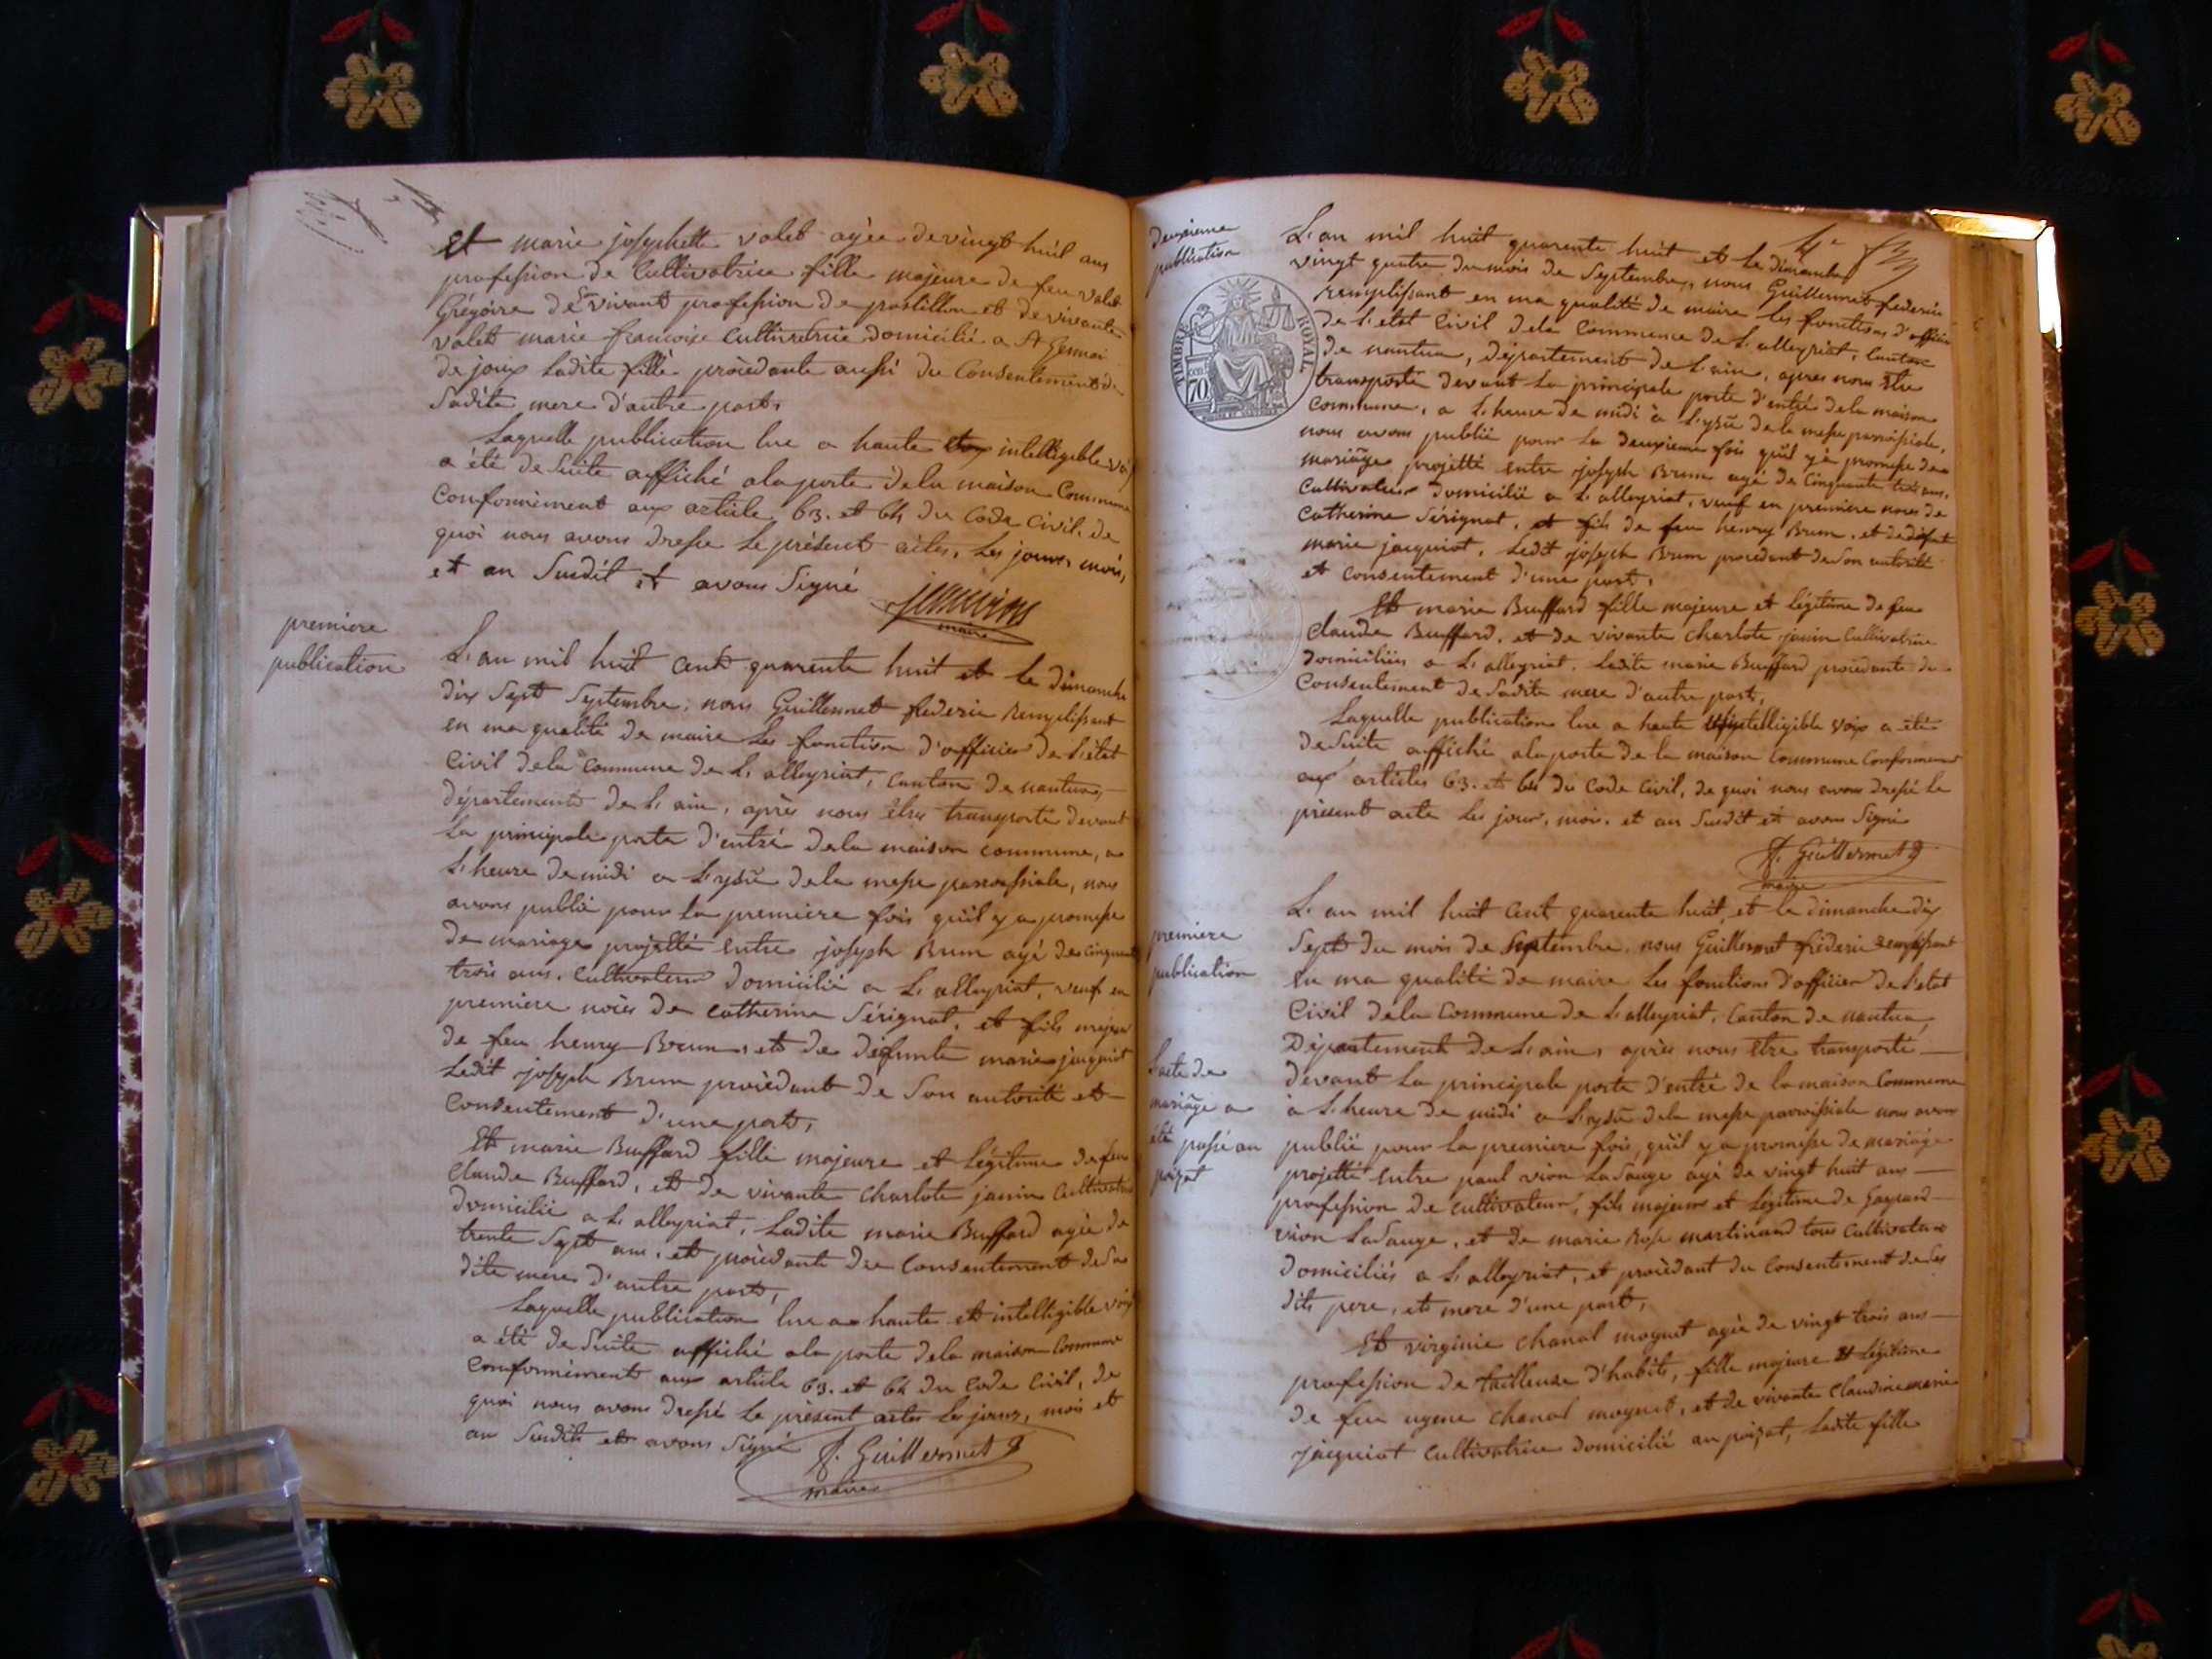 Et marie josephette valet agée de vingt huit ans
profession de Cultivatrice fille majeure de feu valet
Grégoire de Son vivant profession de postillon et de vivante
valet marie francoise cultivatrice domicilié a St Germai
de joux Ladite fille procedante aussi du Consentement de
Sadite mere d'autre part,
Laquelle publication lue a haute intelligible voix
a été de Suite affiché a la porte de la maison Commune
Conformément aux article 63. et 64 du Code Civil. de
quoi nous avons dresse Le présent actes, Les jours, mois,
et an Susdit et avons Signé
maire
premiere
publication
L'an mil huit cent quarente huit et le dimanche
dix Sept Septembre, nous Guillermet frederic Remplissant
en ma qualité de maire Les fonction d'officier de L'état
Civil dela Commune de L'alleyriat, Canton de nantua,
département de L'ain, après nous être transporté devant
La principale porte d'entré dela maison commune, a
L'heure de midi a L'yssu dela messe parroissiale, nous
avons publié pour la premiere fois qu'il y a promesse
de mariage projetté entre joseph Brun agé de cinquante
trois ans. Cultivateur domicilié a L'alleyriat, veuf en
premiere noces de catherine Sérignat, et fils majeur
de feu henry Brun, et de défunte marie jacquiot
Ledit joseph Brun procédant de Son autorité et
Consentement d'une part,
Et marie Buffard fille majeure et Légitime de feu
Claude Buffard, et de vivante Charlote janin Cultivatrice
domicilié a L'alleyriat, Ladite marie Buffard agée de
trente Sept ans, et procédante du Consentement de Sa
dite mere d'autre part,
Laquelle publication lue a haute et intelligible voix
a été de Suite affiché a la porte dela maison Commune
Conformément aux article 63. et 64 du Code Civil, de
quoi nous avons dressé Le présent actes Les jours, mois et
an Susdit et avons Signé
f. Guillermet
maire
4e
deuxieme
publication
TIMBRE ROYAL
70
L'an mil huit quarente huit et le dimanche
vingt quatre du mois de Septembre, nous Guillermet frederic
Remplissant en ma qualité de maire Les fonctions d'officier
de L'etat Civil dela Commune de L'alleyriat, Canton
de nantua, département de L'ain, apres nous être
transporté devant La principale porte d'entré dela maison
Commune, a L'heure de midi à L'yssu dela messe parroissiale,
nous avons publié pour La deuxieme fois qu'il y a promesse de
mariâge projetté entre joseph Brun agé de Cinquante trois ans,
Cultivateur domicilié a L'alleyriat, veuf en premiere noces de
Catherine Sérignat, et fils de feu henry Brun, et de défunt
marie jacquiot, Ledit joseph Brun procédant de Son autorité
et consentement d'une part,
Et marie Buffard fille majeure et légitime de feu
Claude Buffard, et de vivante Charlote janin Cultivatrice
domiciliés a L'alleyriat, Ladite marie Buffard procedante du
Consentement de Sadite mere d'autre part,
Laquelle publication lue a haute intelligible voix a été
de Suite affiché a la porte de la maison Commune Conformement
aux articles 63. et 64 du Code Civil, de quoi nous avons dressé Le
présent acte Les jour, mois, et an Susdit et avons Signé
f. Guillermet
maire
premiere
publication
L'an mil huit Cent quarente huit, et le dimanche dix
Sept du mois de Septembre, nous Guillermet fréderic Remplissant
en ma qualité de maire Les fonctions d'officier de L'etat
Civil dela Commune de L'alleyriat, Canton de nantua,
Département de L'ain, après nous être transporté
devant La principale porte d'entré de la maison Commune
à L'heure de midi a L'yssu dela messe parroissiale nous avons
publié pour La premiere fois, qu'il y a promesse de mariâge
projetté entre paul vion LaSauge agé de vingt huit ans
profession de cultivateur, fils majeur et Légitime de Gaspard
vion LaSauge, et de marie Rose martinand tous Cultivateurs
domiciliés a L'alleyriat, et procédant du Consentement de Ses
dits pere, et mere d'une part,
L'acte de
mariâge a
été passé au
poizat
Et virginie Chanal moynet agée de vingt trois ans
profession de tailleuse d'habits, fille majeure et légitime
de feu Chanal moynet, et de vivante Claudine marie
jacquiot Cultivatrice domicilié au poizat, Ladite fille